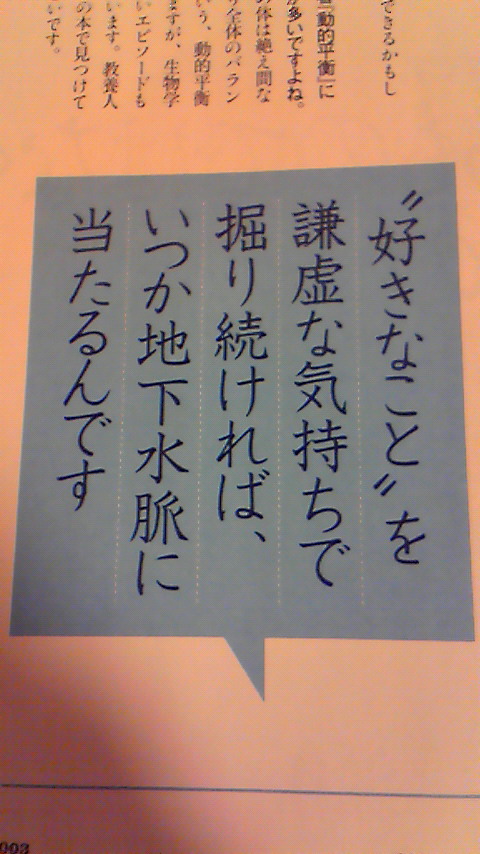 できるかもし
『動的平衡』に
が多いですよね。
体は絶え間な
全体のバラン
いう、動的平衡
ますが、生物学
いエピソードも
います。教養人
の本で見つけて
いです。
〝好きなこと〟を
謙虚な気持ちで
掘り続ければ、
いつか地下水脈に
当たるんです
003